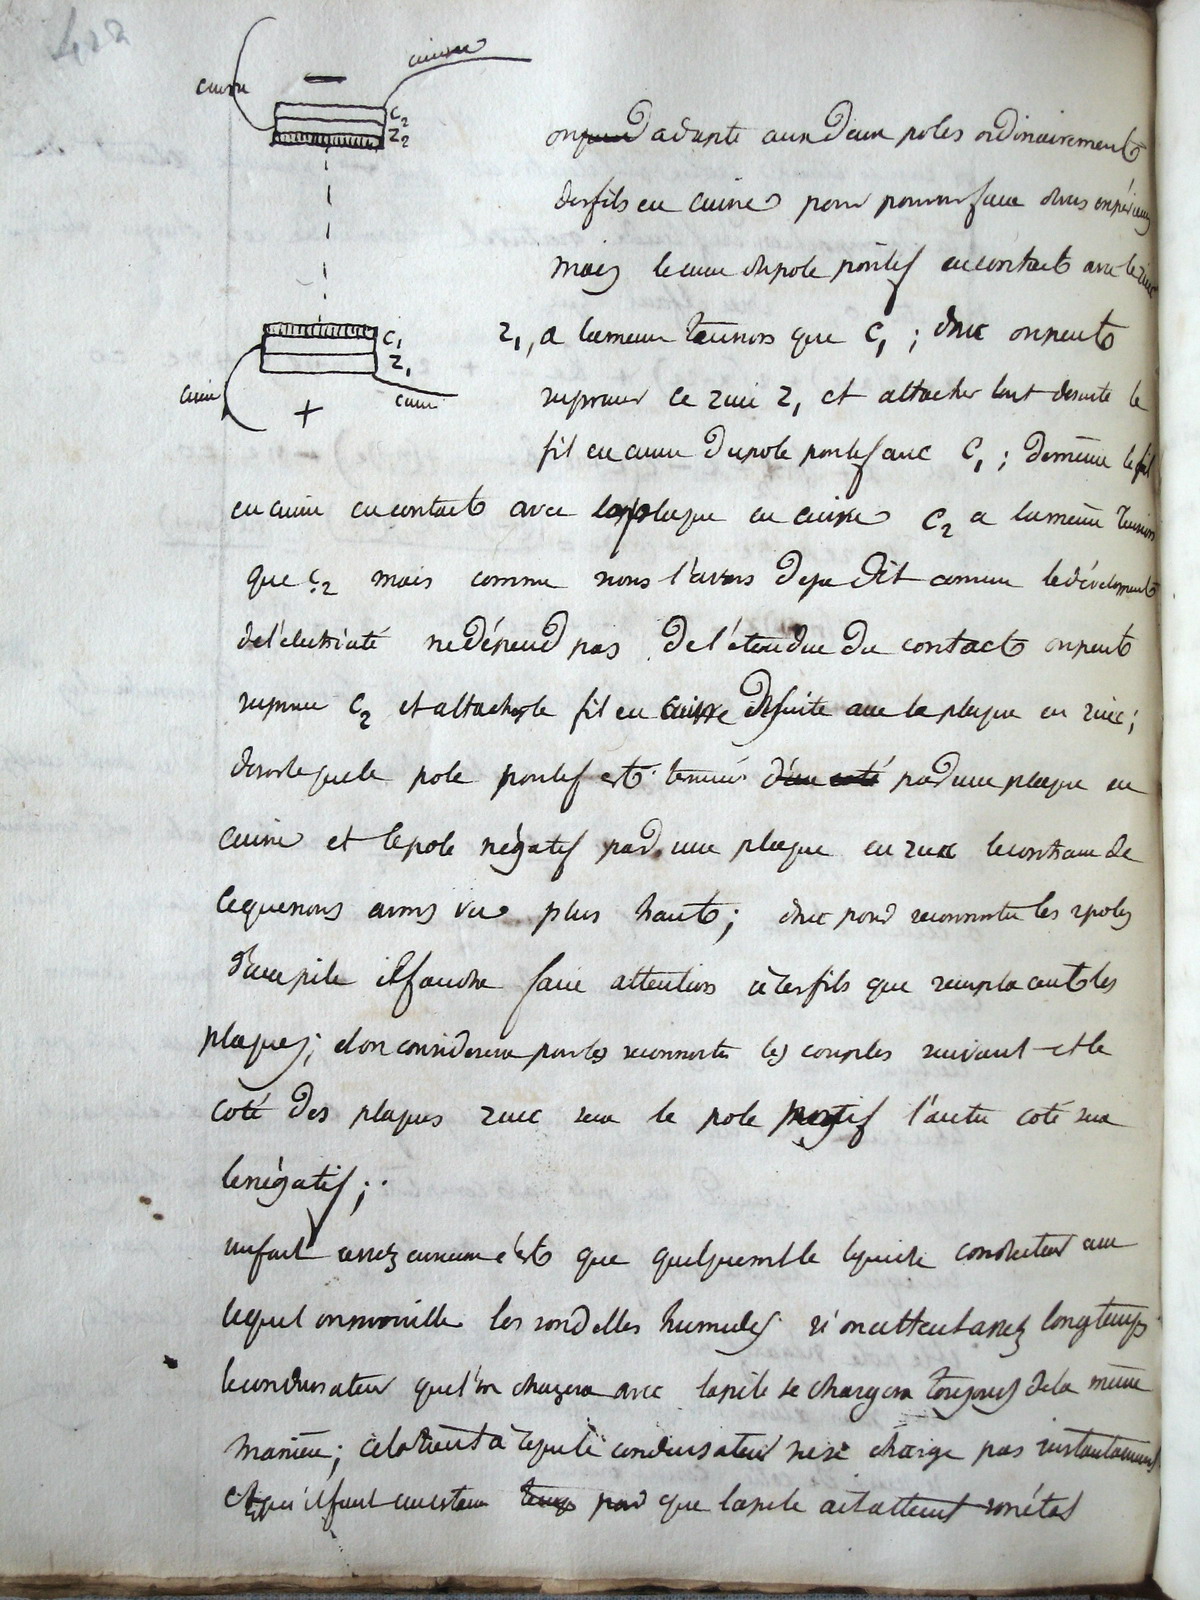 422
cuivre
cuivre
—
C2
Z2
C1
Z1
cuivre
cuivre
+
on adapte aux deux poles ordinairement
des fils en cuivre pour pouvoir faire divers
mais le cuivre du pole positif en contact avec le zinc
Z1, a la meme tension que C1 ; donc on peut
suprimer ce zinc Z1 et attacher tout desuite le
fil en cuivre du pole positif avec C1 ; de même le fil
en cuivre en contact avec la plaque en cuivre C2 a la même tension
que C2 mais comme nous l'avons deja dit comme le dévelopment
de l'électricité ne dépend pas de l'étendue du contact on peut
suprimer C2 et attacher le fil en cuivre desuite avec la plaque en zinc ;
desorte que le pole positif est terminé d'un coté par une plaque en
cuivre et le pole négatif par une plaque en zinc le contraire de
ce que nous avons vu plus haut ; donc pour reconnoitre les 2 poles
d'une pile il faudra faire attention à ces fils que remplacent les
plaques ; et on considerera pour les reconnoitre les couples suivant et le
coté des plaques zinc sera le pole positif l'autre coté sera
le négatif ;
un fait assez curieux c'est que quelque soit le liquide conducteur avec
lequel on mouille les rondelles humides si on attend assez longtemps
le condensateur que l'on chargera avec la pile se chargera toujours de la même
manière ; cela tient à ce que le condensateur ne se charge pas instantanement
et qu'il faut un certain temps pour que la pile ait atteint son état